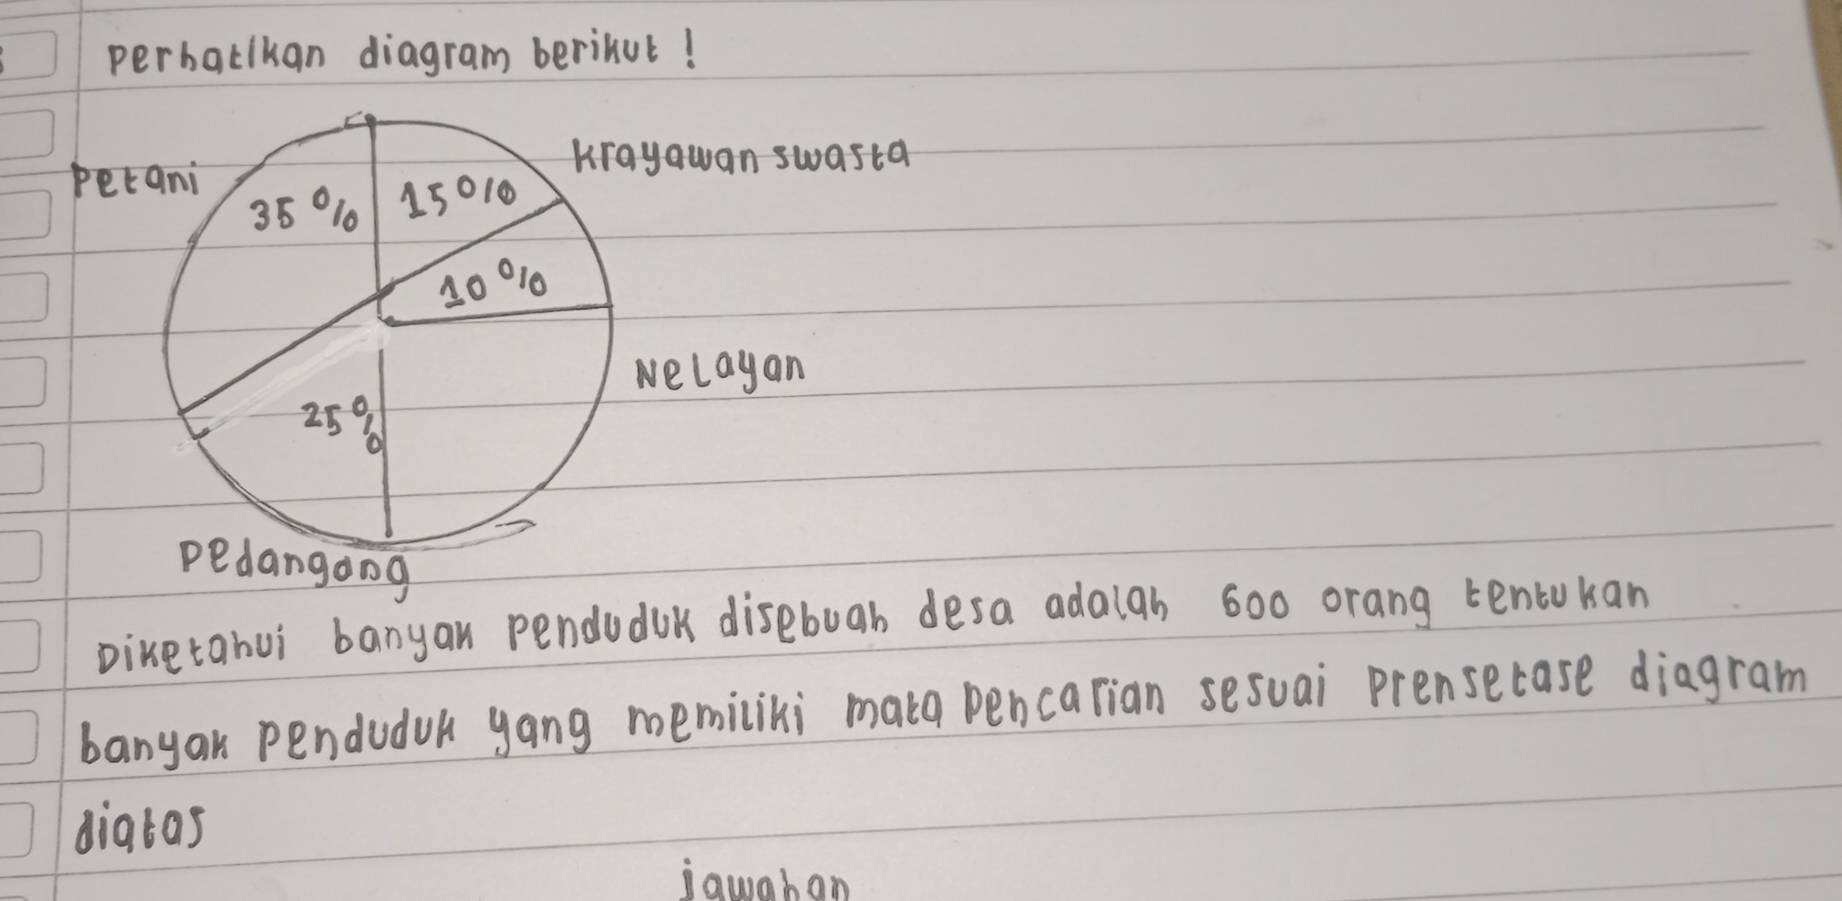 perhatikan diagram berikut !
Krayawan swasta
Petani
35 % 15 %
10 %
Nelayan
25 %
Pedangang
Diketahui banyak penduduk disebuah desa adalah 600 orang tentukan
banyak penduduk yang memiliki mata pencarian sesuai prensetase diagram
diatas
jawaban